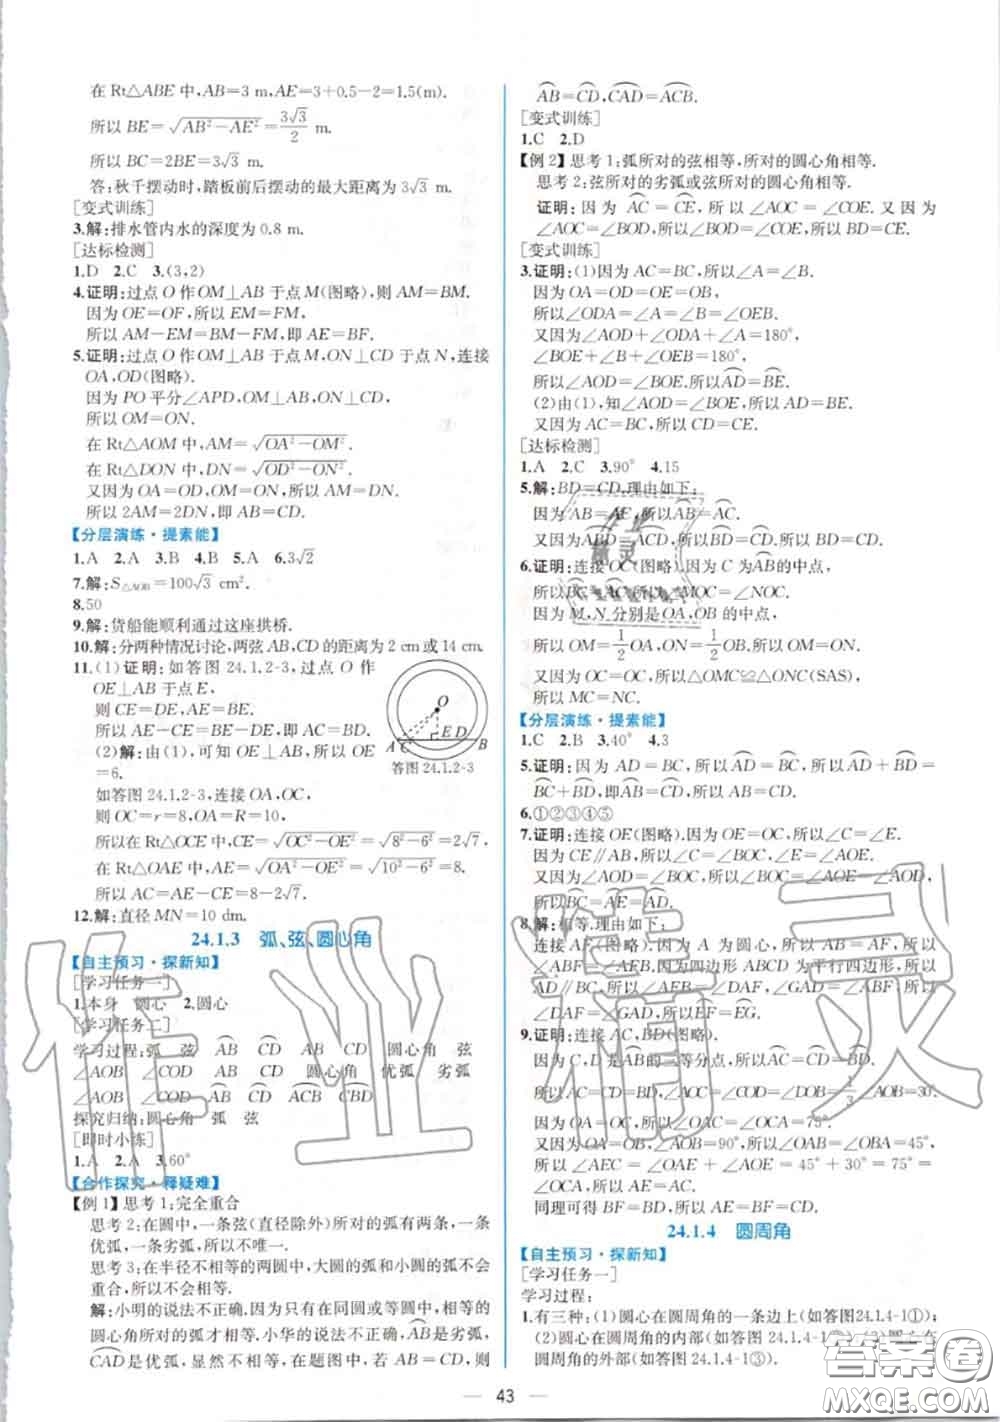 在 Rt△ABE 中,AB=3 m,AE=3+0.5-2=1.5(m).
所以 BE=√(AB²-AE²)=3√3/2 m.
所以 BC=2BE=3√3 m.
答:秋千摆动时,踏板前后摆动的最大距离为 3√3 m.
[变式训练]
3.解:排水管内水的深度为 0.8 m.
[达标检测]
1.D 2.C 3.(3,2)
4.证明:过点 O 作 OM⊥AB 于点 M(图略),则 AM=BM.
因为 OE=OF,所以 EM=FM,
所以 AM-EM=BM-FM,即 AE=BF.
5.证明:过点 O 作 OM⊥AB 于点 M,ON⊥CD 于点 N,连接
OA,OD(图略).
因为 PO 平分∠APD,OM⊥AB,ON⊥CD,
所以 OM=ON.
在 Rt△AOM 中,AM=√(OA²-OM²).
在 Rt△DON 中,DN=√(OD²-ON²).
又因为 OA=OD,OM=ON,所以 AM=DN.
所以 2AM=2DN,所以 AB=CD.
【分层演练·提素能】
1.A 2.A 3.B 4.B 5.A 6.3√2
7.解:S△AOB=100√3 cm².
8.50
9.解:货船能顺利通过这座拱桥.
10.解:分两种情况讨论,两弦 AB,CD 的距离为 2 cm 或 14 cm.
11.(1)证明:如答图 24.1.2-3,过点 O 作
OE⊥AB 于点 E,
则 CE=DE,AE=BE.
所以 AE-CE=BE-DE,即 AC=BD.
(2)解:由(1),可知 OE⊥AB,OE
=6.
O
A C E D B
答图 24.1.2-3
如答图 24.1.2-3,连接 OA,OC,
则 OC=r=8,OA=R=10,
所以在 Rt△OCE 中,CE=√(OC²-OE²)=√(8²-6²)=2√7.
在 Rt△OAE 中,AE=√(OA²-OE²)=√(10²-6²)=8,
所以 AC=AE-CE=8-2√7.
12.解:直径 MN=10 dm.
24.1.3 弧、弦、圆心角
【自主预习·探新知】
[学习任务一]
1.本身 圆心 2.圆心
[学习任务二]
学习过程:弧 弦 AB CD AB CD 圆心角 弦
∠AOB ∠COD AB CD 圆心角 优弧 劣弧
∠AOB ∠COD AB CD ACB CBD
探究归纳:圆心角 弧 弦
[即时小练]
1.A 2.A 3.60°
【合作探究·释疑难】
[例 1] 思考 1:完全重合
思考 2:在圆中,一条弦(直径除外)所对的弧有两条,一条
优弧,一条劣弧,所以不唯一.
思考 3:在半径不相等的两圆中,大圆的弧和小圆的弧不可能重合,
所以不会相等.
解:小明的说法不正确.因为只有在同圆或等圆中,相等的
圆心角所对的弧才相等.小华的说法不正确,AB是劣弧,
CAD是优弧,显然不相等,在题图中,若 AB=CD,则
AB=CD,CAD=ACB.
[变式训练]
1.C 2.D
[例 2] 思考 1:弧所对的弦相等,所对的圆心角相等.
思考 2:弦所对的劣弧或弦所对的圆心角相等.
证明:因为 AC=CE,所以∠AOC=∠COE.又因为
∠AOC=∠BOD,所以∠BOD=∠COE,所以BD=CE.
[变式训练]
3.证明:(1)因为 AC=BC,所以∠A=∠B.
因为 OA=OD=OE=OB,
所以∠ODA=∠A=∠B=∠OEB.
又因为∠AOD+∠ODA+∠A=180°,
∠BOE+∠B+∠OEB=180°,
所以∠AOD=∠BOE.所以AD=BE.
(2)由(1),知∠AOD=∠BOE,所以 AD=BE.
又因为 AC=BC,所以 CD=CE.
[达标检测]
1.A 2.C 3.90° 4.15
5.解:BD=CD.理由如下:
因为 AB=AE,所以AB=AC.
又因为ABD=ACD,所以BD=CD.
6.证明:连接 OC(图略).因为 C 为AB的中点,
所以AC=BC,所以∠MOC=∠NOC.
因为 M,N 分别是 OA,OB 的中点,
所以 OM=1/2 OA=1/2 OB=OM.
又因为 OC=OC,所以△OMC≌△ONC(SAS),
所以 MC=NC.
【分层演练·提素能】
1.C 2.B 3.40° 4.3
5.证明:因为 AD=BC,所以AD=BC,所以AD+BD=
BC+BD,即AB=CD,所以 AB=CD.
6.①②③④⑤
7.证明:连接 OE(图略).因为 OE=OC,所以∠C=∠E.
因为 CE∥AB,所以∠C=∠BOC,∠E=∠AOE.
又因为∠AOD=∠BOC,所以∠AOE=∠AOD,
所以AE=AD.
8.解:相等.理由如下:
连接 AF(图略).因为 A 为圆心,所以 AB=AF,所以
∠ABF=∠AFB.因为四边形 ABCD 为平行四边形,所以
AD∥BC,所以∠AFB=∠DAF,∠GAD=∠ABF,所以
∠DAF=∠GAD,所以EF=EG.
9.证明:连接 AC,BD(图略).
因为 C,D 是AB的三等分点,所以AC=CD=DB,
所以 AC=CD=BD,∠AOC=∠COD=∠DOB=1/3∠AOB=30°.
又因为 OA=OC,所以∠ACO=75°.
又因为 OA=OB,∠AOB=90°,所以∠OAB=∠OBA=45°,
所以∠AEC=∠OAE+∠AOE=45°+30°=75°=
∠ACO,所以 AE=AC.
同理可得 BF=BD,所以 AE=BF=CD.
24.1.4 圆周角
【自主预习·探新知】
[学习任务一]
学习过程:
1.有三种:(1)圆心在圆周角的一条边上(如答图24.1.4-1①);
(2)圆心在圆周角的内部(如答图 24.1.4-1②);(3)圆心在
圆周角的外部(如答图 24.1.4-1③).
43
作业精灵
答案圈
MXQE.COM